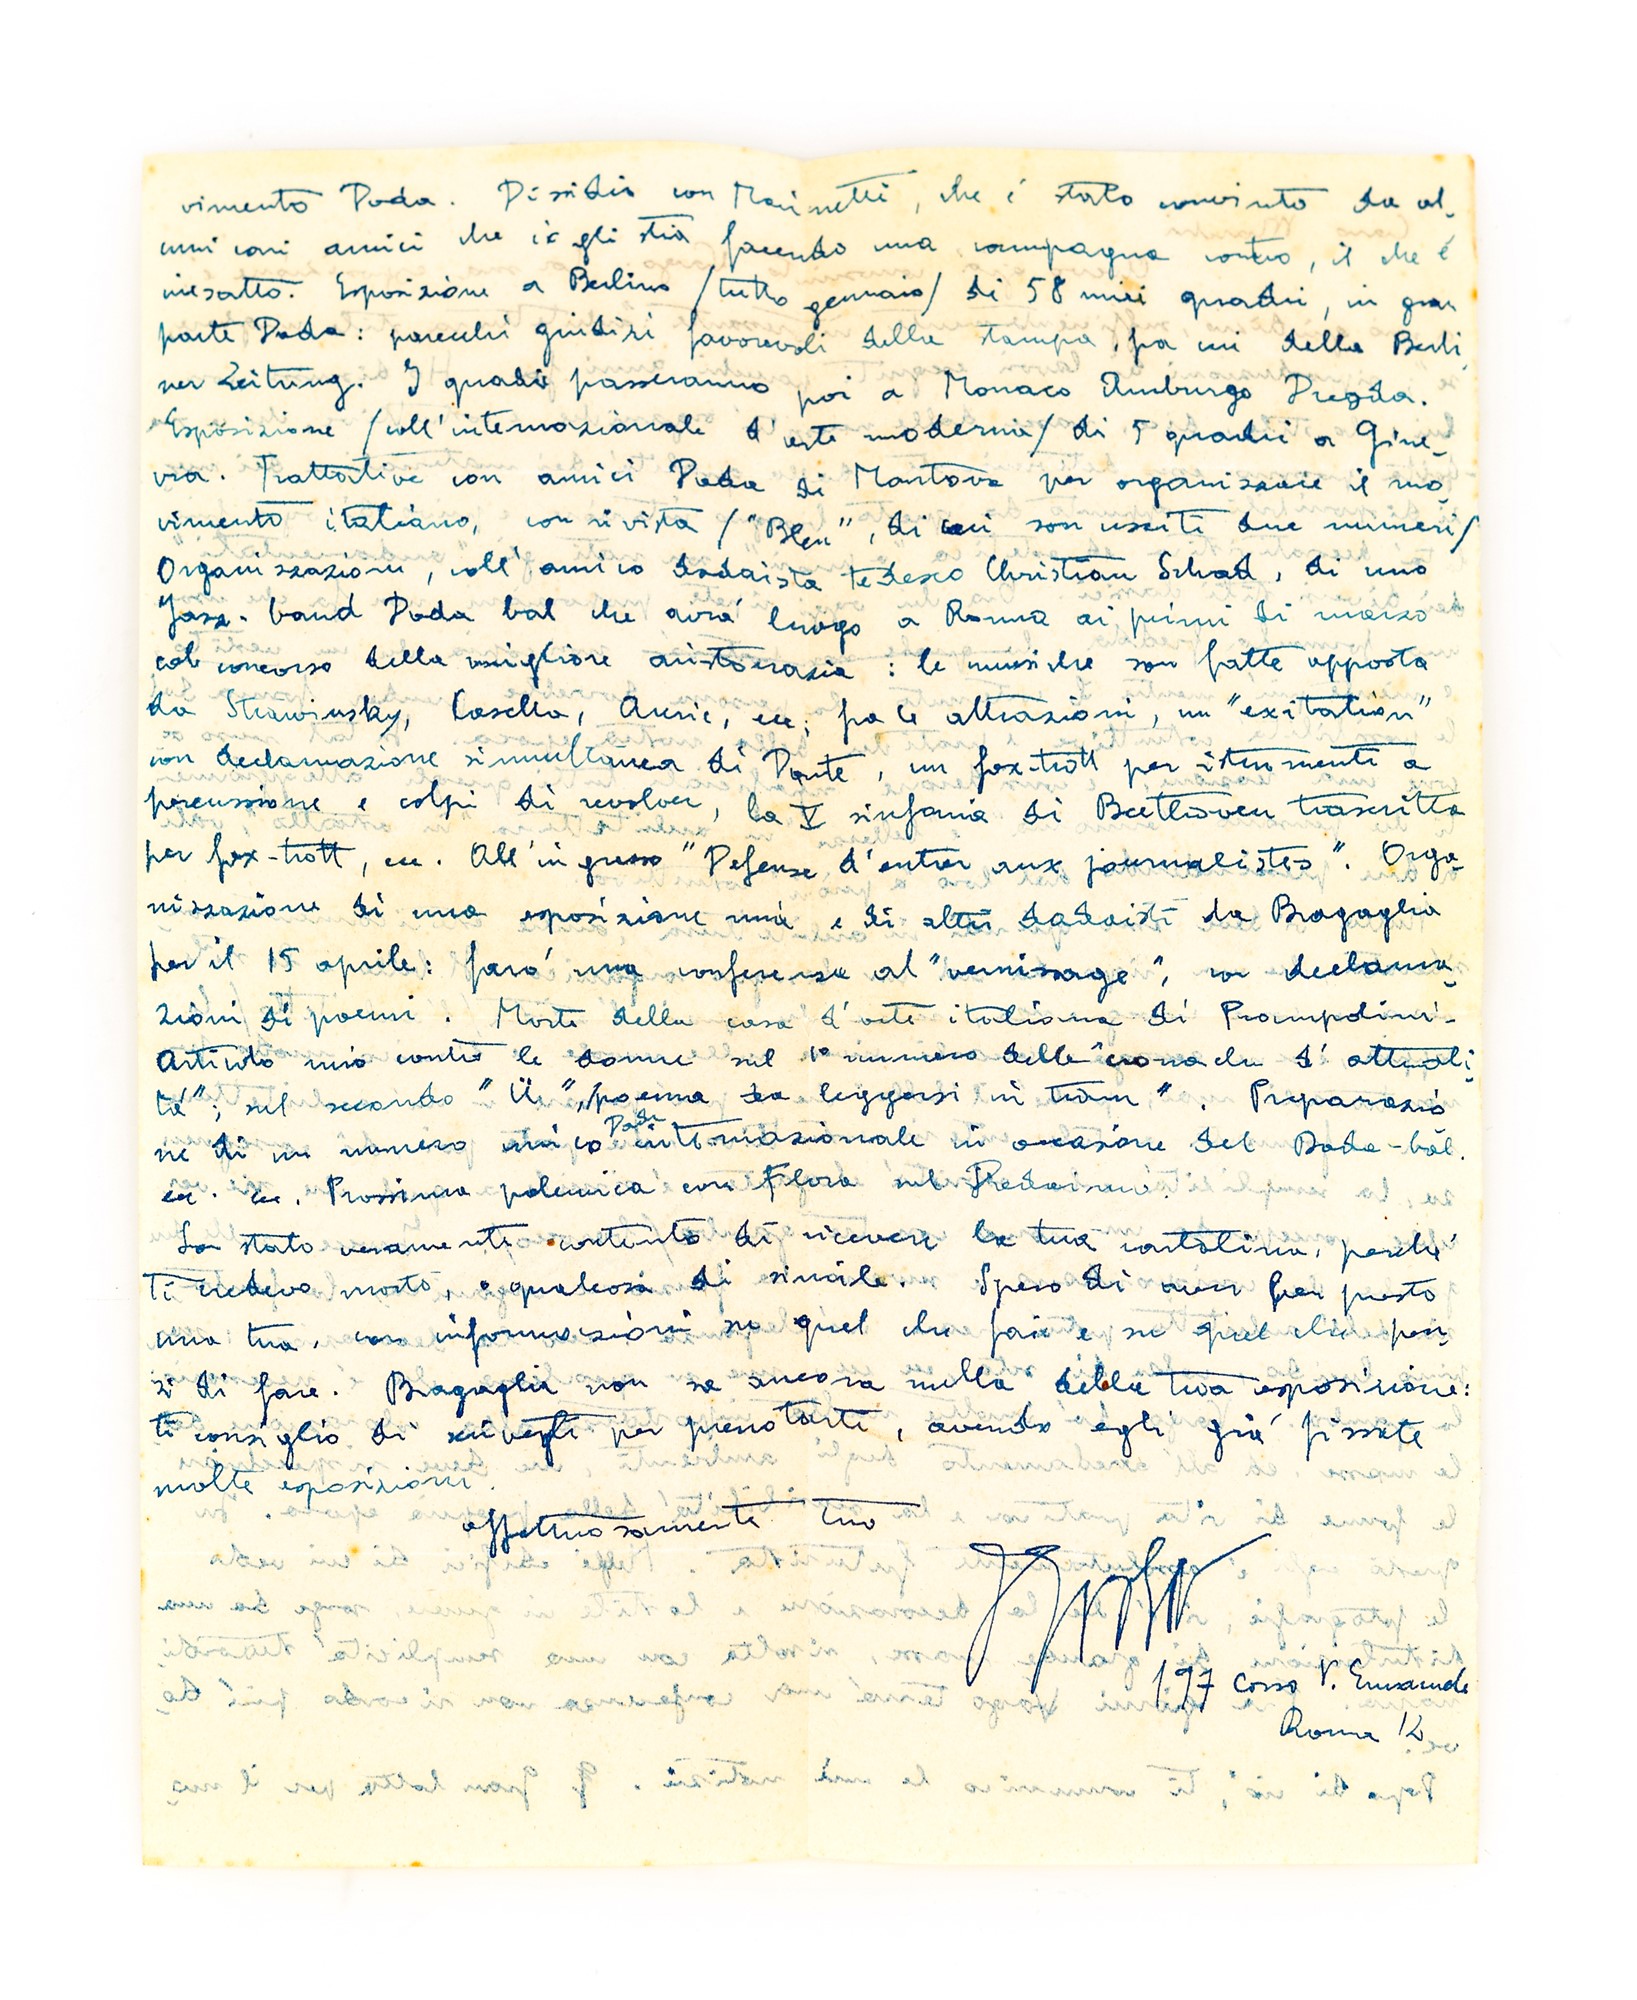 vimento Dada. Dissidio con Marinetti, che é stato convinto da al-
cuni cari amici che io gli stia facendo una campagna contro, il che é
inesatto. Esposizione a Berlino /tutto gennaio/ di 58 miei quadri, in gran
parte Dada: parecchi giudizi favorevoli della stampa, fra cui della Berli-
ner Zeitung. I quadri passeranno poi a Monaco Amburgo Dresda.
Esposizione /coll'internazionale d'arte moderna/ di 5 quadri a Gine-
vra. Trattative con amici Dada di Mantova per organizzare il mo-
vimento italiano, con rivista /"Bleu", di cui son usciti due numeri/
Organizzazione, coll'amico dadaista tedesco Christian Schad, di uno
Jazz-band Dada bal che avrá luogo a Roma ai primi di marzo
col concorso della migliore aristocrazia: le musiche son fatte apposta
da Strawinsky, Casella, Auric, ecc; fra le attrazioni, un "exitation"
con declamazione simultanea di Dante, un fox-trott per istrumenti a
percussione e colpi di revolver, la V sinfonia di Beethoven trascritta
per fox-trott, ecc. All'ingresso "Defense d'entrer aux journalistes". Orga-
nizzazione di una esposizione mia e di altri dadaisti da Bragaglia
per il 15 aprile: faró una conferenza al "vernissage", con declama-
zioni di poemi. Morte della casa d'arte italiana di Prampolini.
Articolo mio contro le donne sul 1° numero delle "cronache d'attuali-
tá"; sul secondo "Ü", /poema da leggersi in tram". Preparazio-
ne di un numero unico Dada internazionale in occasione del Dada-bal.
ecc. ecc. Prossima polemica con Flora sul Dadaismo.
Son stato veramente contento di ricevere la tua cartolina, perché
ti credevo morto, o qualcosa di simile. Spero di aver ben presto
una tua, con informazioni su quel che fai e su quel che pen-
si di fare. Bragaglia non sa ancora nulla della tua esposizione:
ti consiglio di scrivergli per prenotarti, avendo egli giá fissate
molte esposizioni.
affettuosamente tuo
197 Corso V. Emanuele
Roma 12